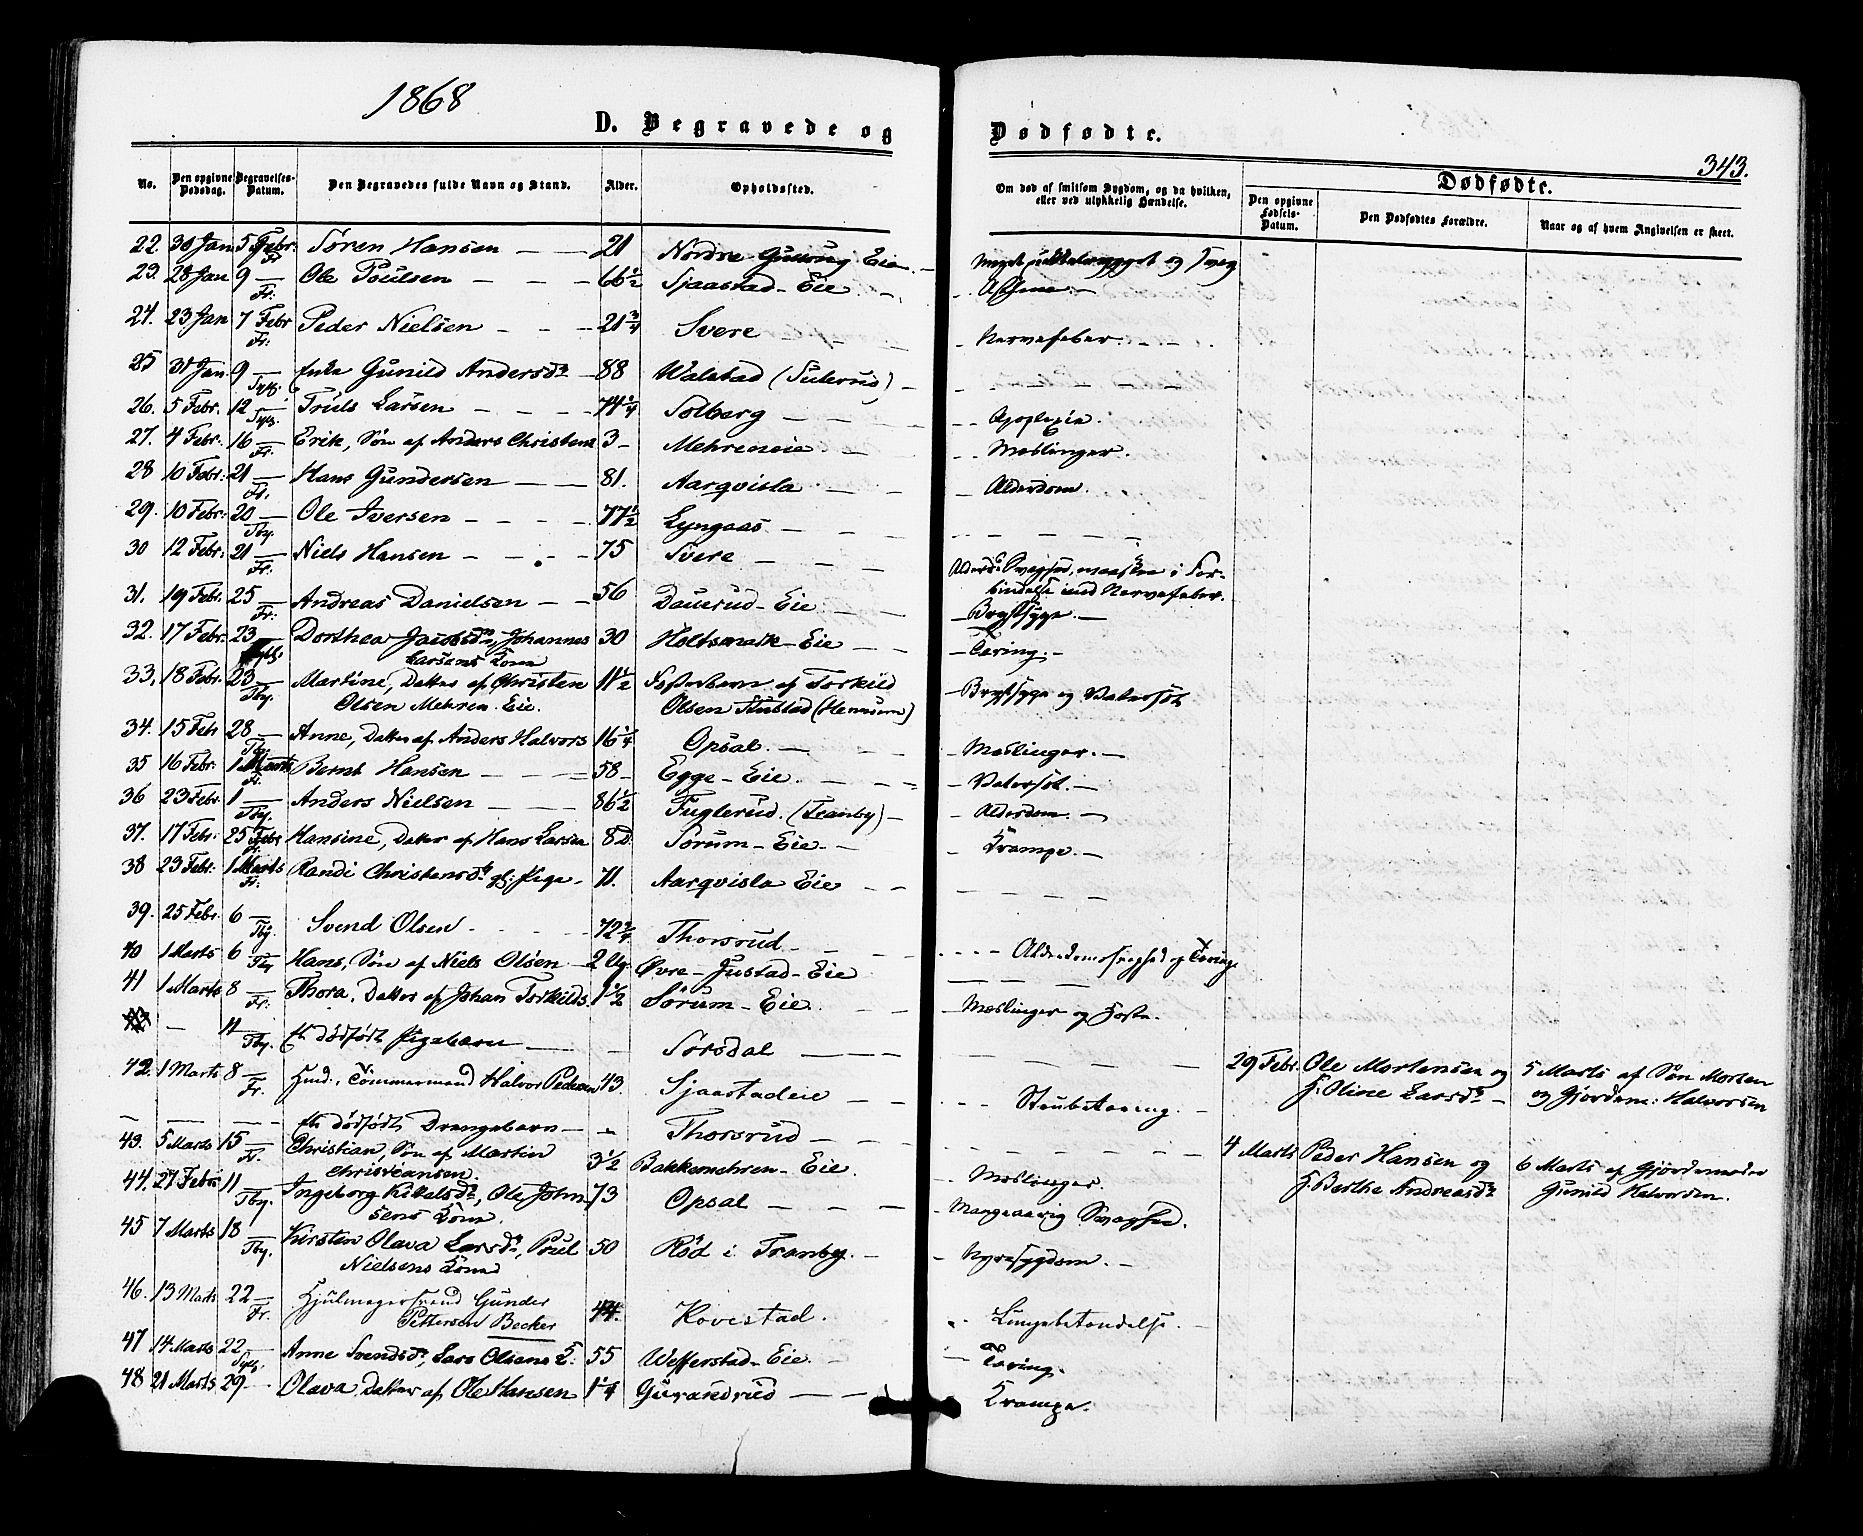 1868
D. Begravede og Dødfødte.
343.
No. Den opgivne Dødsdag. Begravelses-Datum. Den Begravedes fulde Navn og Stand. Alder. Opholdssted. Om død af smitsom Sygdom, og da hvilken, eller ved ulykkelig Hændelse. Dødfødte. Den opgivne Fødsels-Datum. Den Dødfødtes Forældre. Naar og af hvem Angivelsen er skeet.
22. 30 Jan 5 Febr: Fr. Søren Hansen 21 Nordre Eie
23. 28 Jan 9 Fr. Ole Poulsen 66 1/2 Sjaastad-Eie
24. 23 Jan 7 Febr Fr: Peder Nielsen 21 3/4 Svere Nervefeber
25 31 Jan. 9 Enke Gunild Andersdr 88 Walstad
26. 5 Febr. 12 Truls Larsen 74 1/4 Solberg Apoplexia.
27. 4 Febr. 16 Fr. Erik, Søn af Anders Christens 3 Mehreneie Meslinger.
28 10 Febr: 21 Fr. Hans Gundersen 81. Aarqvisla Alderdom.
29. 10 Febr: 20 Tby. Ole Iversen 77 1/2 Lyngaas
30 12 Febr: 21 Fr. Niels Hansen 75 Svere Svaghed, maaskee i For-
bindelse med Nervefeber.
31. 19 Febr. 25 Fr: Andreas Danielsen 56 Dauerud-Eie Brystsyge.
32. 17 Febr. 23 Dorthea Jacobsdr, Johannes 30 Holtsmark-Eie Tæring.
Larsens Kone
33, 18 Febr. 23 Tby. Martine, Datter af Christen 11 1/2 Fosterbarn af Torkild Brystsyge og Vatersot
Olsen Mehren-Eie. Olsen
34. 15 Feb 28 Tby Anne, Datter af Anders Halvors 16 1/4 Opsal. Meslinger.
35 16 Febr. 1 Marts Fr. Bernt Hansen 58 Egge-Eie. Vatersot.
36 23 Febr. 1 Tby. Anders Nielsen 86 1/2 Fuglerud. (Tranby) Alderdom.
37. 17 Febr: 25 Febr Hansine, Datter af Hans Larsen 8 D. Sørum-Eie Krampe.
38 23 Febr: 1 Marts Fr: Randi Christensdr gl: Pige 71. Aarqvisla Eie
39. 25 Febr. 6 Tby. Svend Olsen 72 3/4 Thorsrud Alderdomssvaghed og Tæring
40 1 Marts 6 Tby Hans, Søn af Niels Olsen 2 Ug. Øvre-Justad-Eie
41 1 Marts 8 Fr. Thora, Datter af Johan Torkilds. 1 1/2 Sørum-Eie. Meslinger og Hoste.
11 Tby. Et dødfødt Pigebarn Sørsdal 29 Febr. Ole Mortensen og H: Oline Larsdr 5 Marts af Søn Morten og Gjordem: Halvorsen
42. 1 Marts 8 Fr. Tømmermand Halvor Pedersen 43. Sjaastadeie Strubetæring.
Et dødfødt Drengebarn Thorsrud 4 Marts Peder Hansen og H: Berthe Andreasdr 6 Marts af Gjordemoder Gunild Halvorsen.
43. 5 Marts 15 Fr. Christian, Søn af Martin 3 1/2 Bakkemehren-Eie. Meslinger.
Christiansen.
44. 27 Febr 11 Tby. Ingeborg, Ole John- 73 Opsal Mangeaarig Svaghed.
sens Kone.
45 7 Marts 18 Tby. Kirsten Olava Larsdr, Poul 50 Rød i Tranby. Nyresygdom.
Nielsens Kone
46. 13 Marts 22 Fr. Hjulmagersvend Gunder 44. Kovestad. Lungebetændelse.
Pettersen Becker
47 14 Marts 22 Anne Svendsdr, Lars Olsens K. 55 Wefferstad-Eie. Tæring.
48 21 Marts 29 Olava, Datter af Ole Hansen 1 1/4 Gurandrud Krampe.